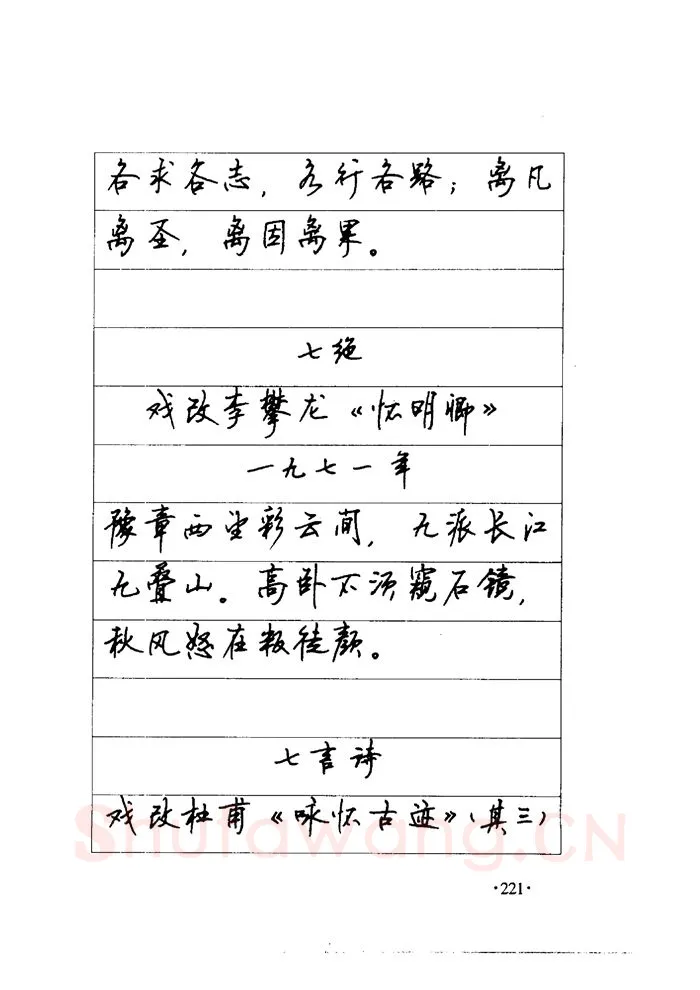 各求各志，各行各路；离凡
离圣，离因离果。
七绝
戏改李攀龙《怀明卿》
一九七一年
豫章西望彩云间，九派长江
九叠山。高卧不须窥石镜，
秋风怒在叛徒颜。
七言诗
戏改杜甫《咏怀古迹》（其三）
Shufawang.CN
·221·